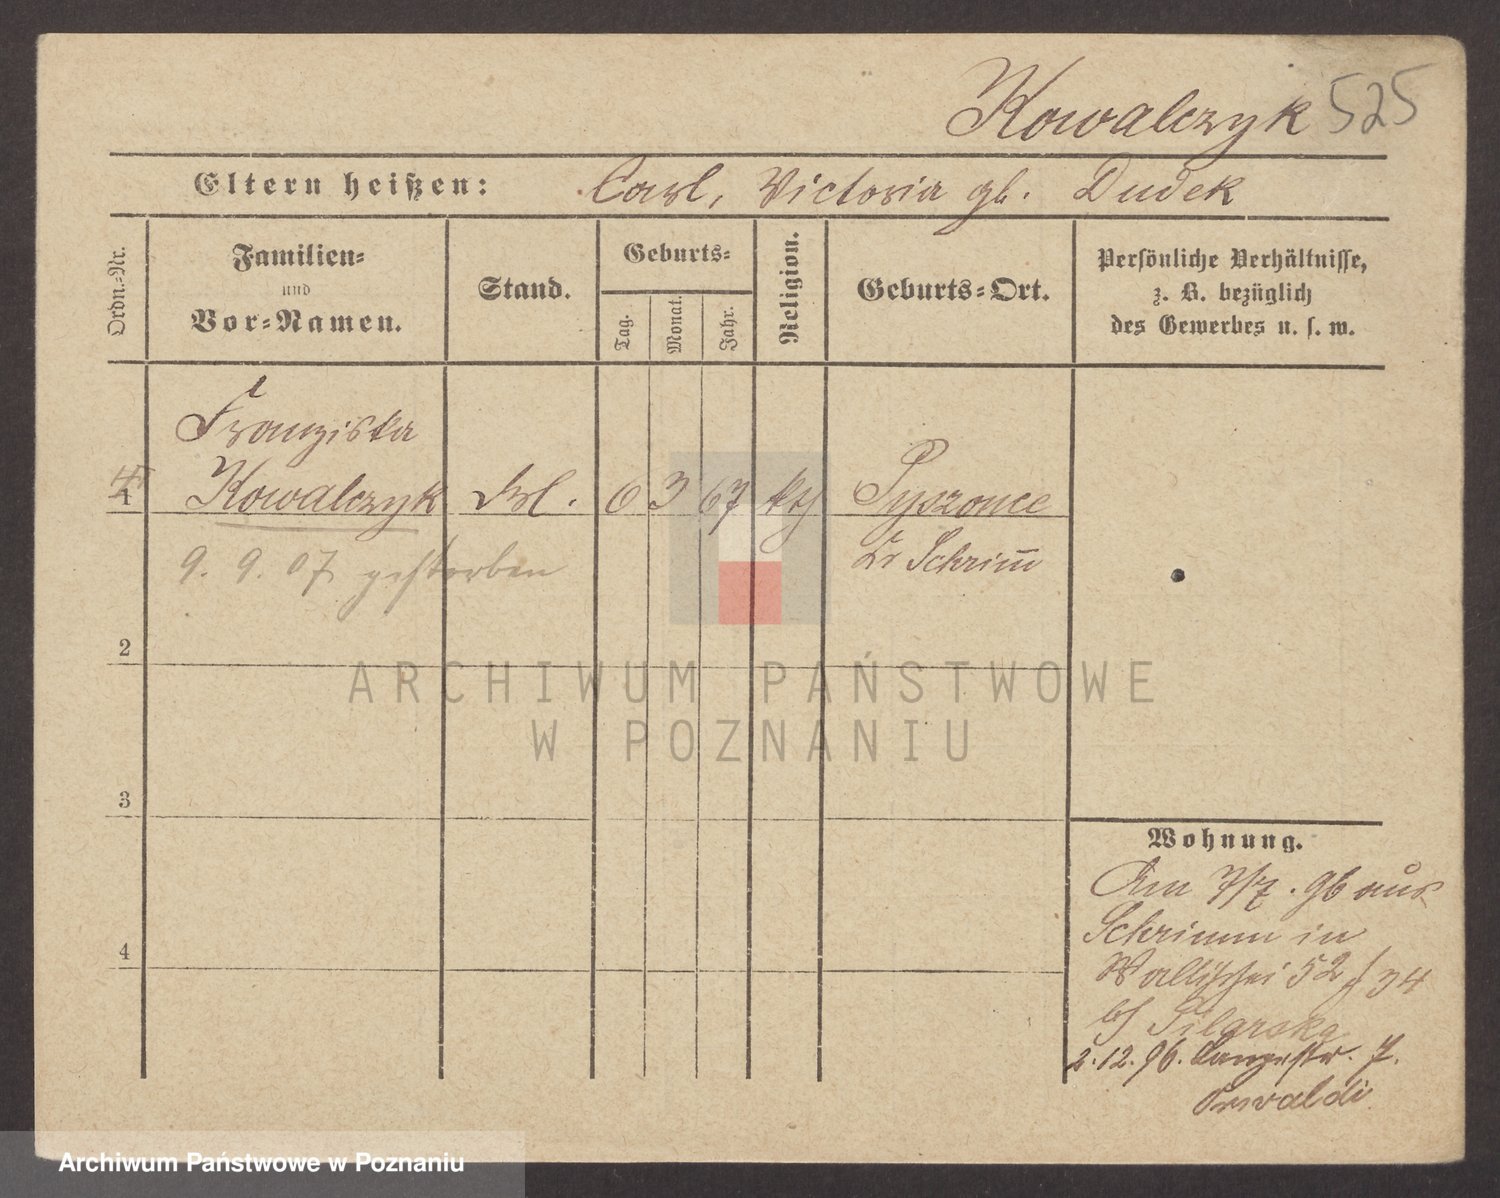 Kowalczyk 525
Eltern heißen: Carl, Victoria gb. Dudek
Ordn.-Nr.
Familien-
und
Vor-Namen.
Stand.
Geburts-
Tag.
Monat.
Jahr.
Religion.
Geburts-Ort.
Persönliche Verhältnisse,
z. B. bezüglich
des Gewerbes u. s. w.
Franziska
1 Kowalczyk Frl. 6 3 67 kth Pyszonce
Kr Schrim̄
9. 9. 07 gestorben
2
3
4
Wohnung.
Am 7/7. 96 aus
Schrimm in
Wallischei 52/34
bei Pilarska
2.12.96. Langestr. 7.
ARCHIWUM PAŃSTWOWE
W POZNANIU
Archiwum Państwowe w Poznaniu